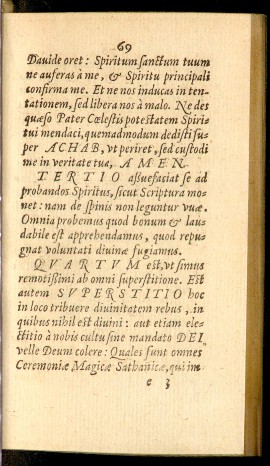 69
Dauide oret: Spiritum sanctum tuum
ne auferas à me, & Spiritu principali
confirma me. Et ne nos inducas in ten-
tationem, sed libera nos à malo. Ne des
quæso Pater Cœlestis potestatem Spiri-
tui mendaci, quemadmodum dedisti su-
per ACHAB, vt periret, sed custodi
me in veritate tua, AMEN
TERTIO assuefaciat se ad
probandos Spiritus, sicut Scriptura mo-
net: nam de spinis non leguntur vuæ.
Omnia probemus quod bonum & lau-
dabile est apprehendamus, quod repu-
gnat voluntati diuinæ fugiamus.
QVARTVM est, vt simus
remotissimi ab omni superstitione. Est
autem SVPERSTITIO hoc
in loco tribuere diuinitatem rebus, in
quibus nihil est diuini: aut etiam ele-
ctitio à nobis cultu sine mandato DEI
velle Deum colere: Quales sunt omnes
Ceremoniæ Magicæ Sathanicæ, qui im
e 3